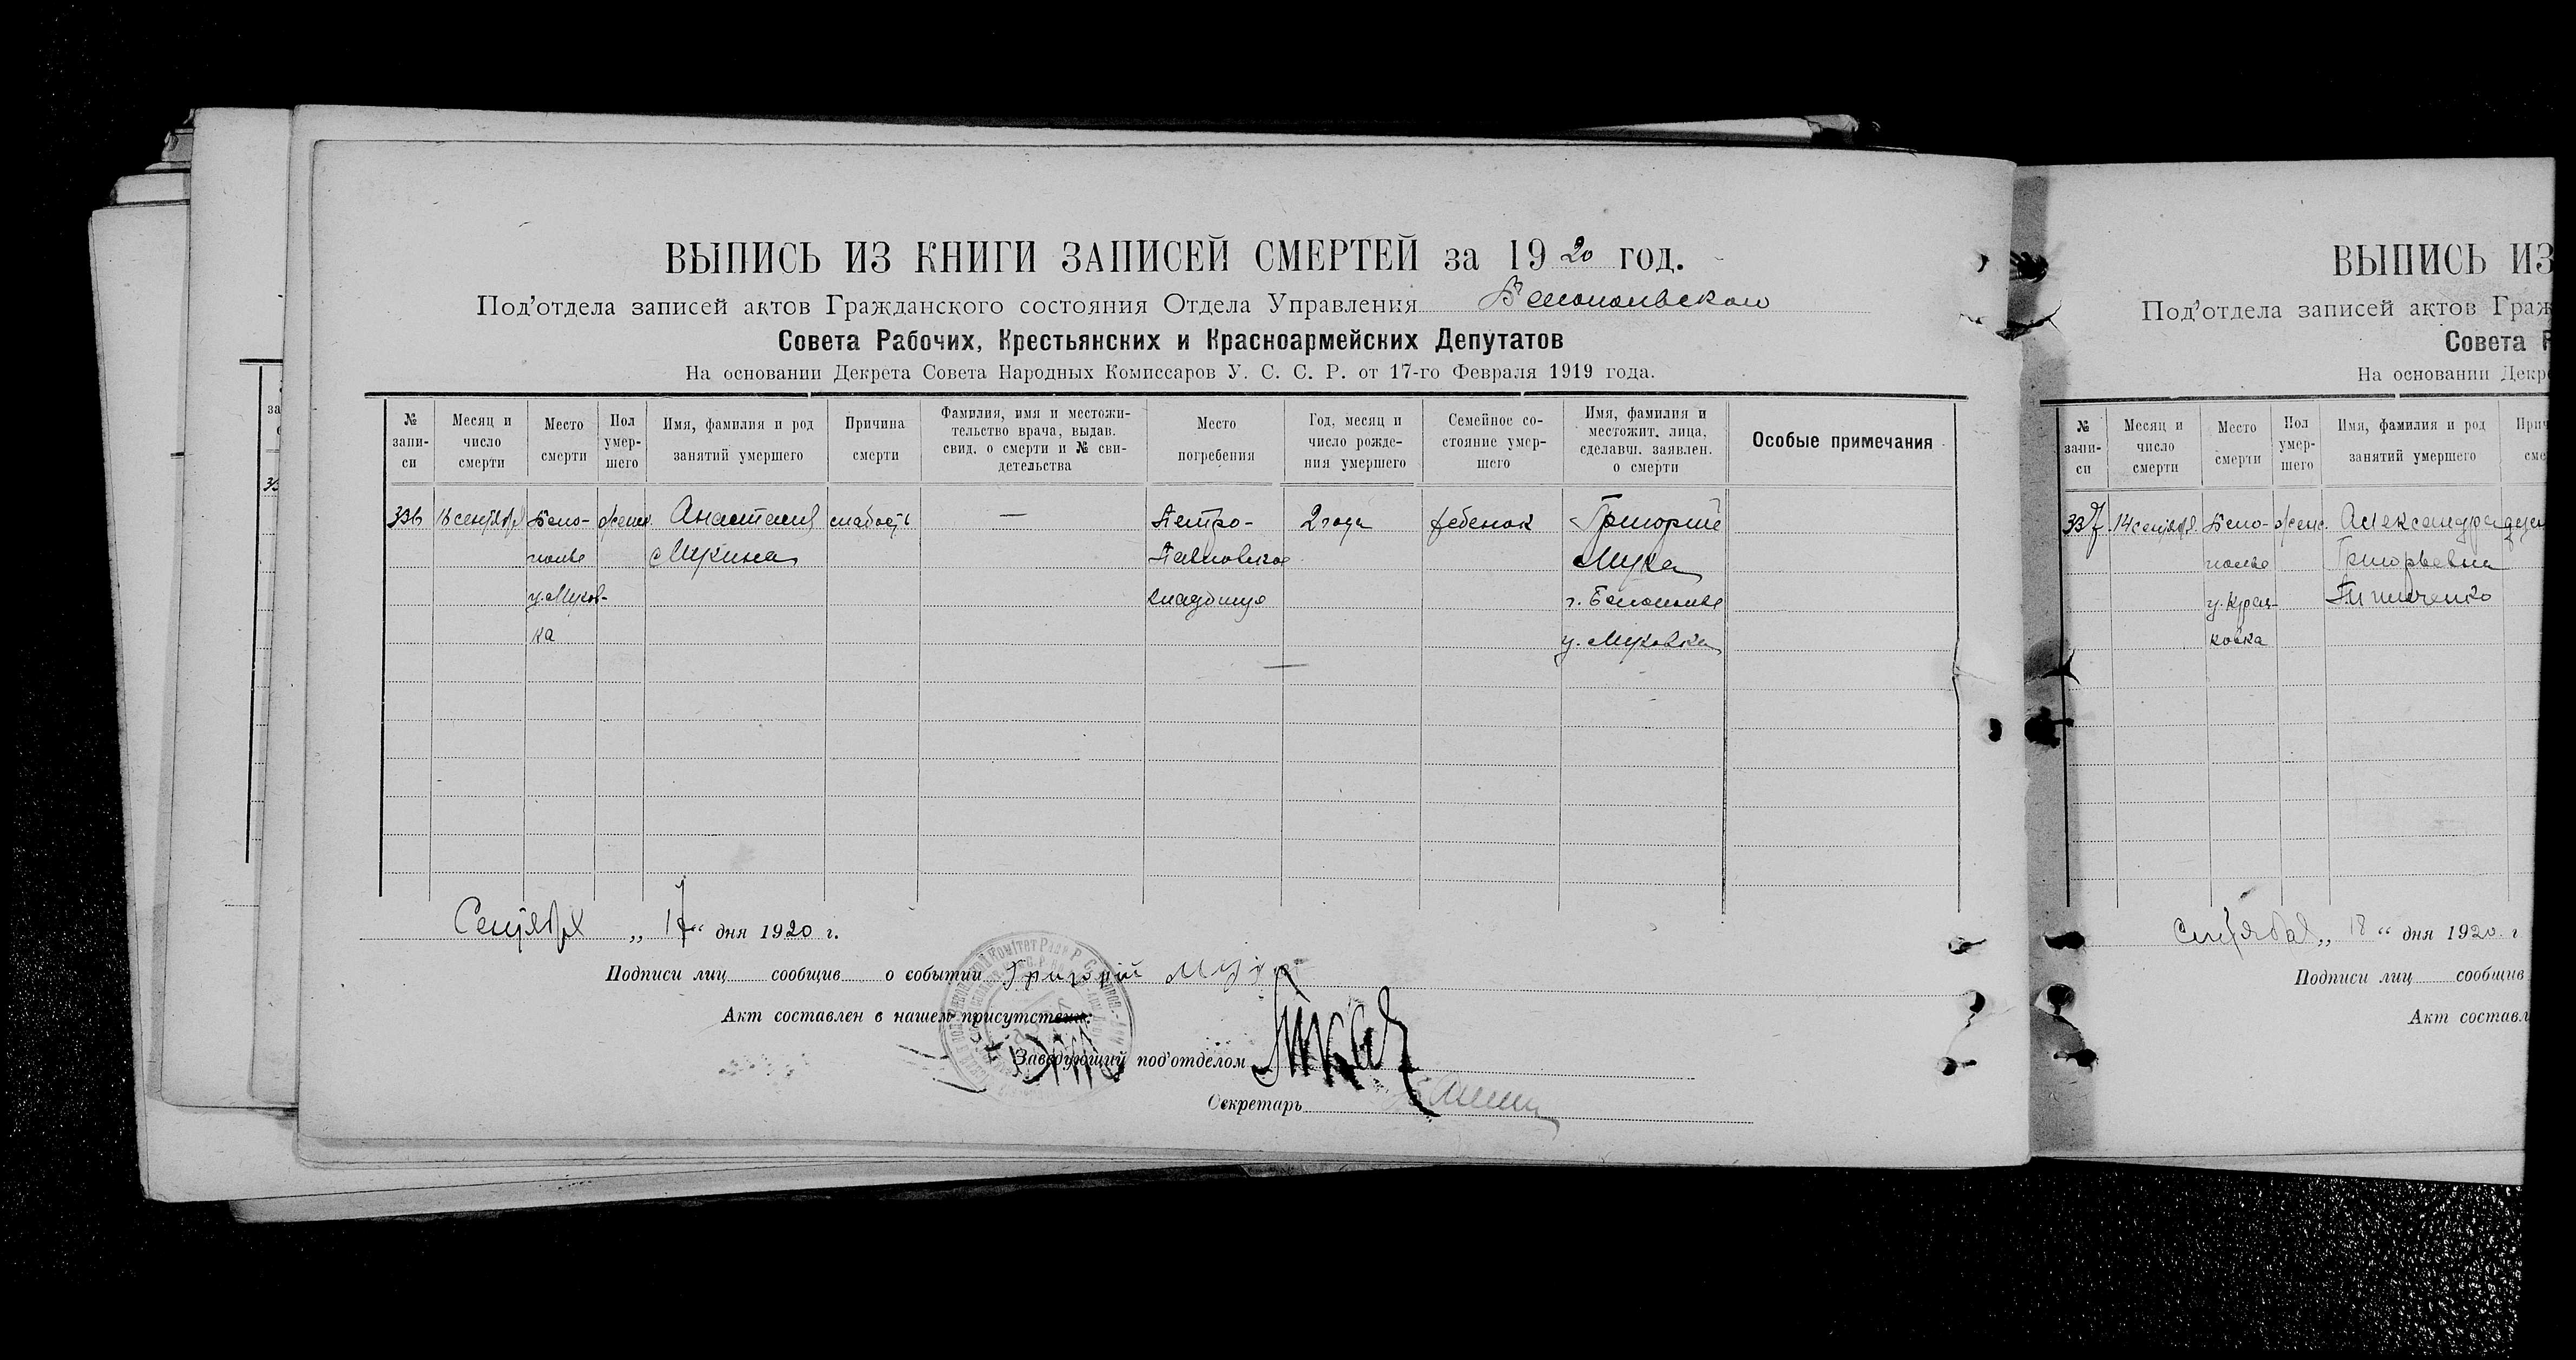 ВЫПИСЬ ИЗ КНИГИ ЗАПИСЕЙ СМЕРТЕЙ за 1920 год.
Под'отдела записей актов Гражданского состояния Отдела Управления Белопольского
Совета Рабочих, Крестьянских и Красноармейских Депутатов
На основании Декрета Совета Народных Комиссаров У. С. С. Р. от 17-го Февраля 1919 года.
№ запи-
си
Месяц и
число
смерти
Место
смерти
Пол
умер-
шего
Имя, фамилия и род
занятий умершего
Причина
смерти
Фамилия, имя и местожи-
тельство врача, выдав.
свид. о смерти и № сви-
детельства
Место
погребения
Год, месяц и
число рожде-
ния умершего
Семейное со-
стояние умер-
шего
Имя, фамилия и
местожит. лица,
сделавш. заявлен.
о смерти
Особые примечания
336 16 сентября Бело- женск. Анастасия слабость — Петро- 2 года ребенок Григорий
полье Мукина Павловское Мука
у. Муков- кладбище г. Белополье
ка у. Муковка
Сентября „ 17 “ дня 1920 г.
Подписи лиц сообщив о событии Григорій Мука
Акт составлен в нашем присутствии:
Заведующий под'отделом
Секретарь
ВЫПИСЬ ИЗ
Под'отдела записей актов Граж
Совета Р
На основании Декре
№
запи-
си
Месяц и
число
смерти
Место
смерти
Пол
умер-
шего
Имя, фамилия и род
занятий умершего
Прич
сме
337 14 сентября Бело- женс. Александра
полье Григорьевна
ковка
сентября „ 18 “ дня 1920 г
Подписи лиц сообщив
Акт составл